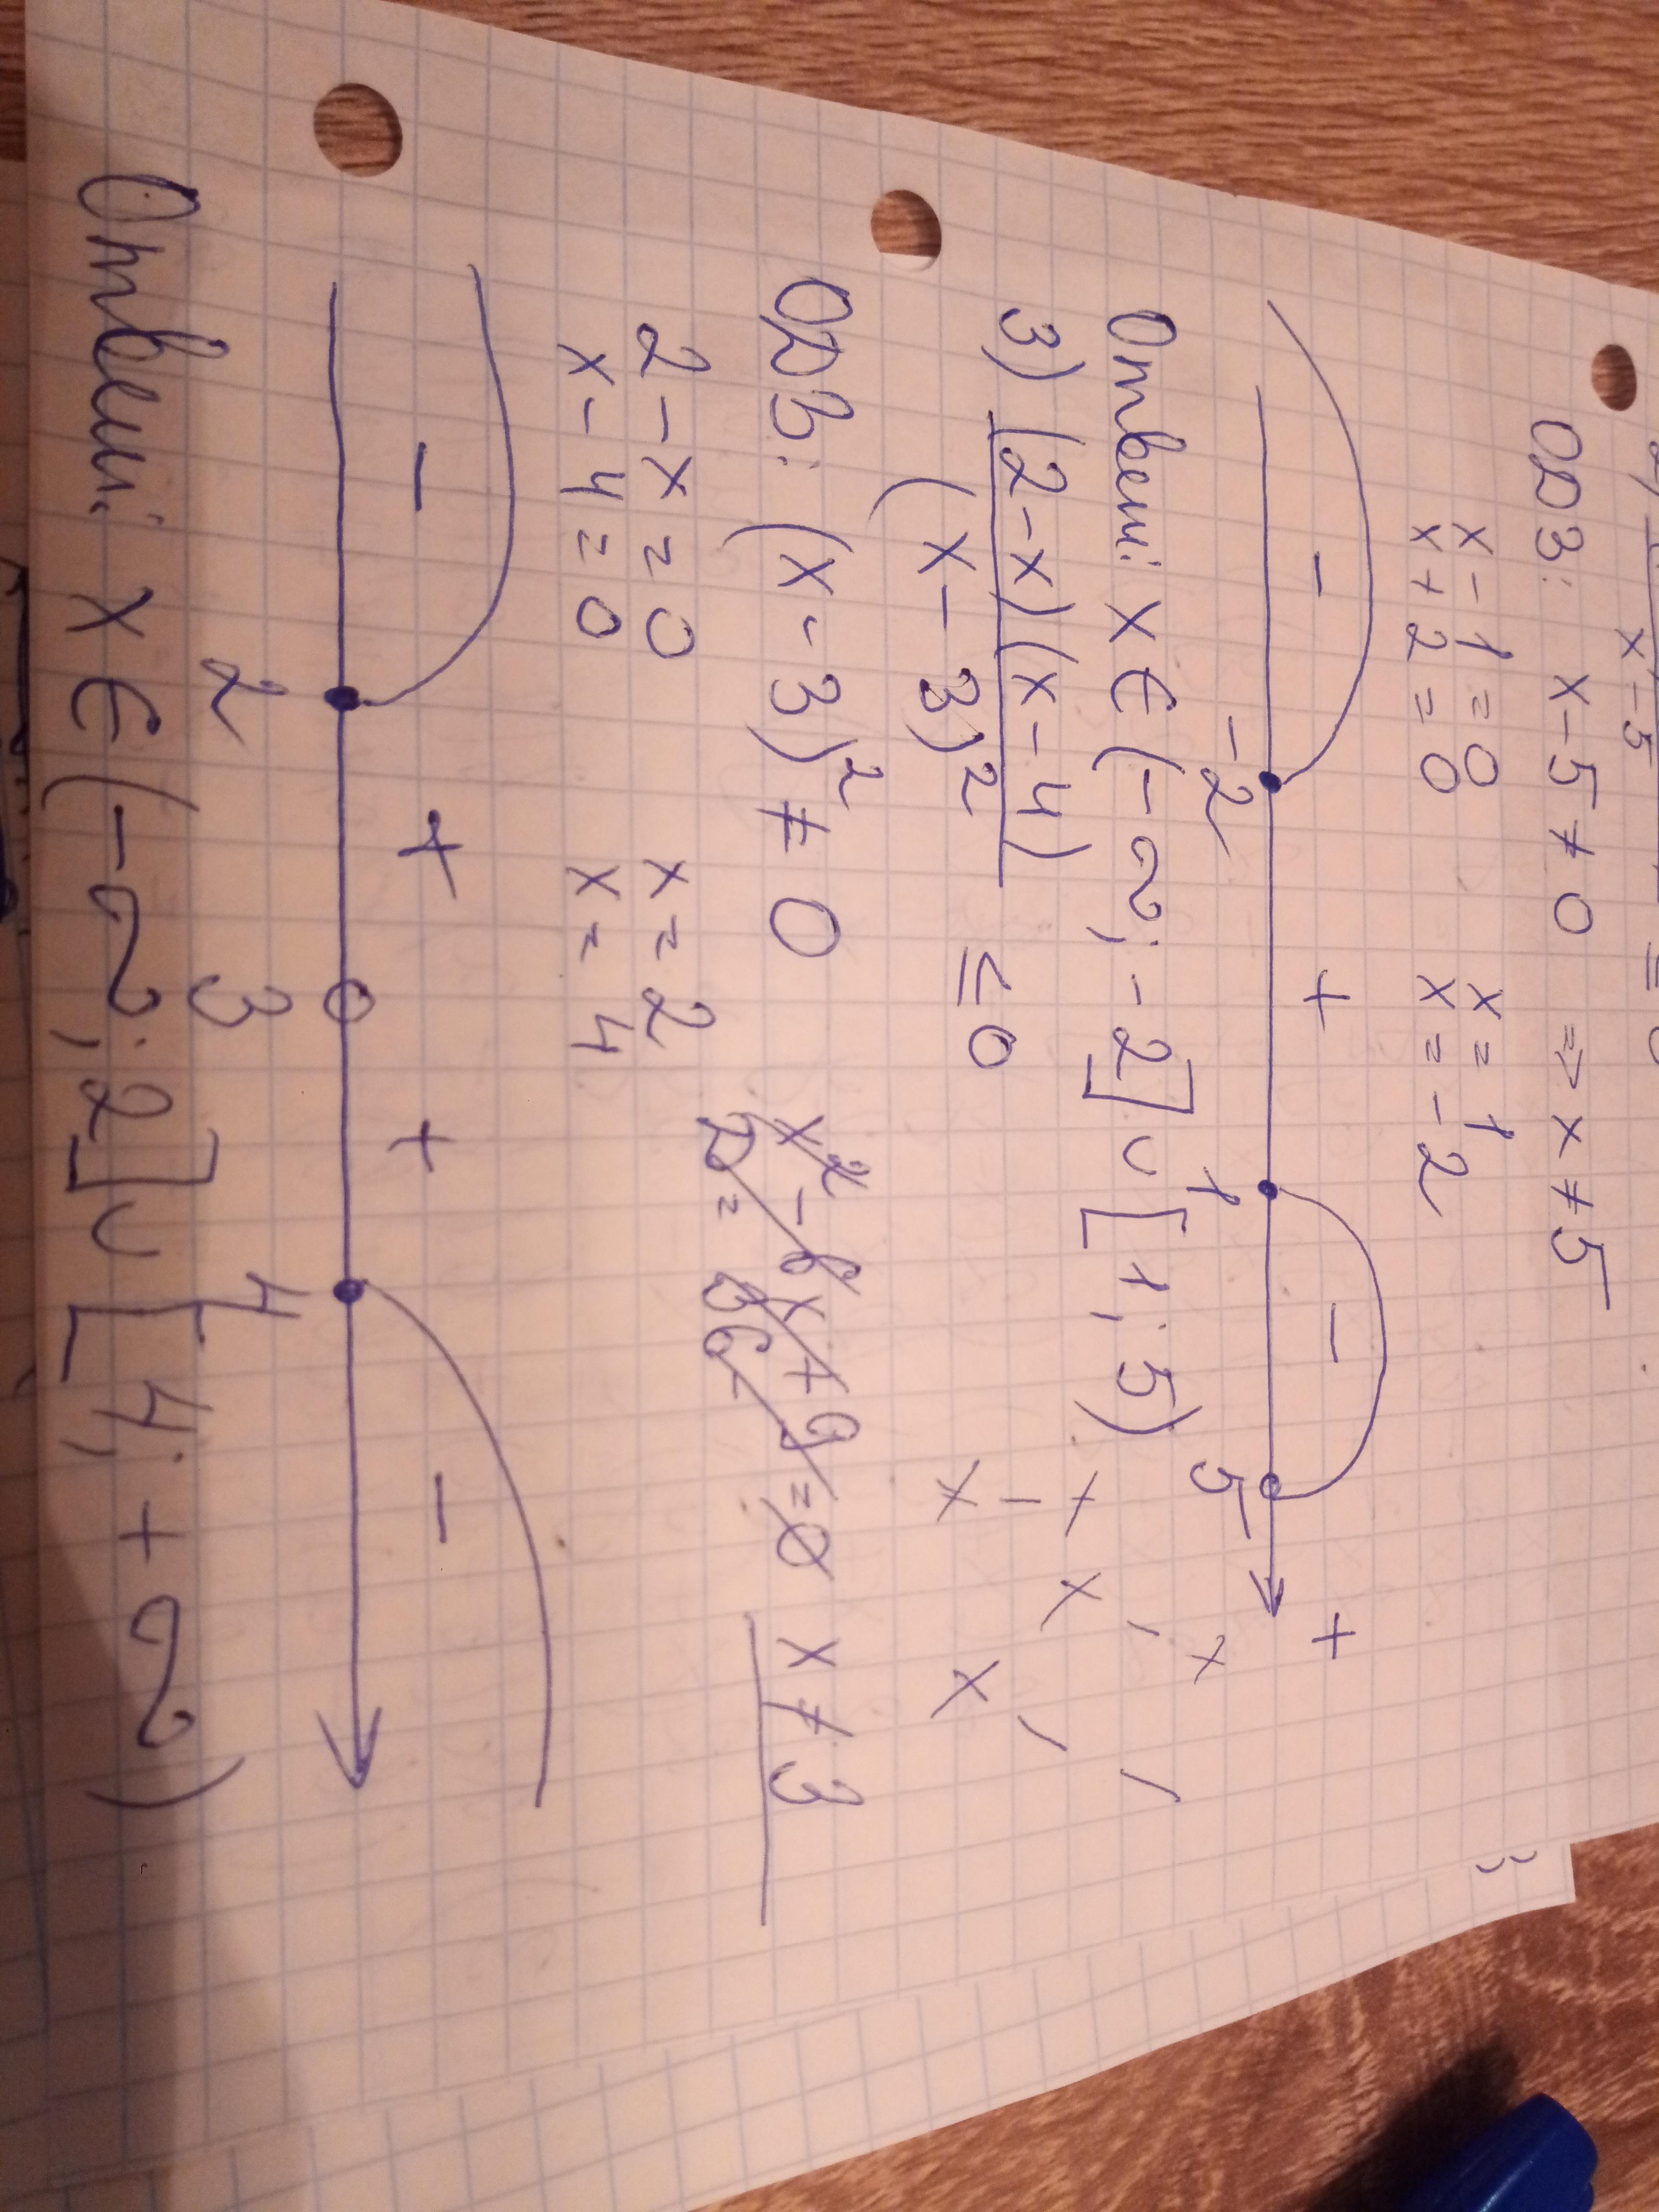 x-5
ОДЗ: x-5≠0 => x≠5
x-1=0 x=1
x+2=0 x=-2
- + - +
-2 1 5
Ответ: x∈(-∞; -2]∪[1; 5)
3) (2-x)(x-4)
(x-3)² ≤0
ОДЗ: (x-3)²≠0 x²-6x+9=0 x≠3
D=36-
2-x=0 x=2
x-4=0 x=4
- + + -
2 3 4
Ответ: x∈(-∞; 2]∪[4; +∞)